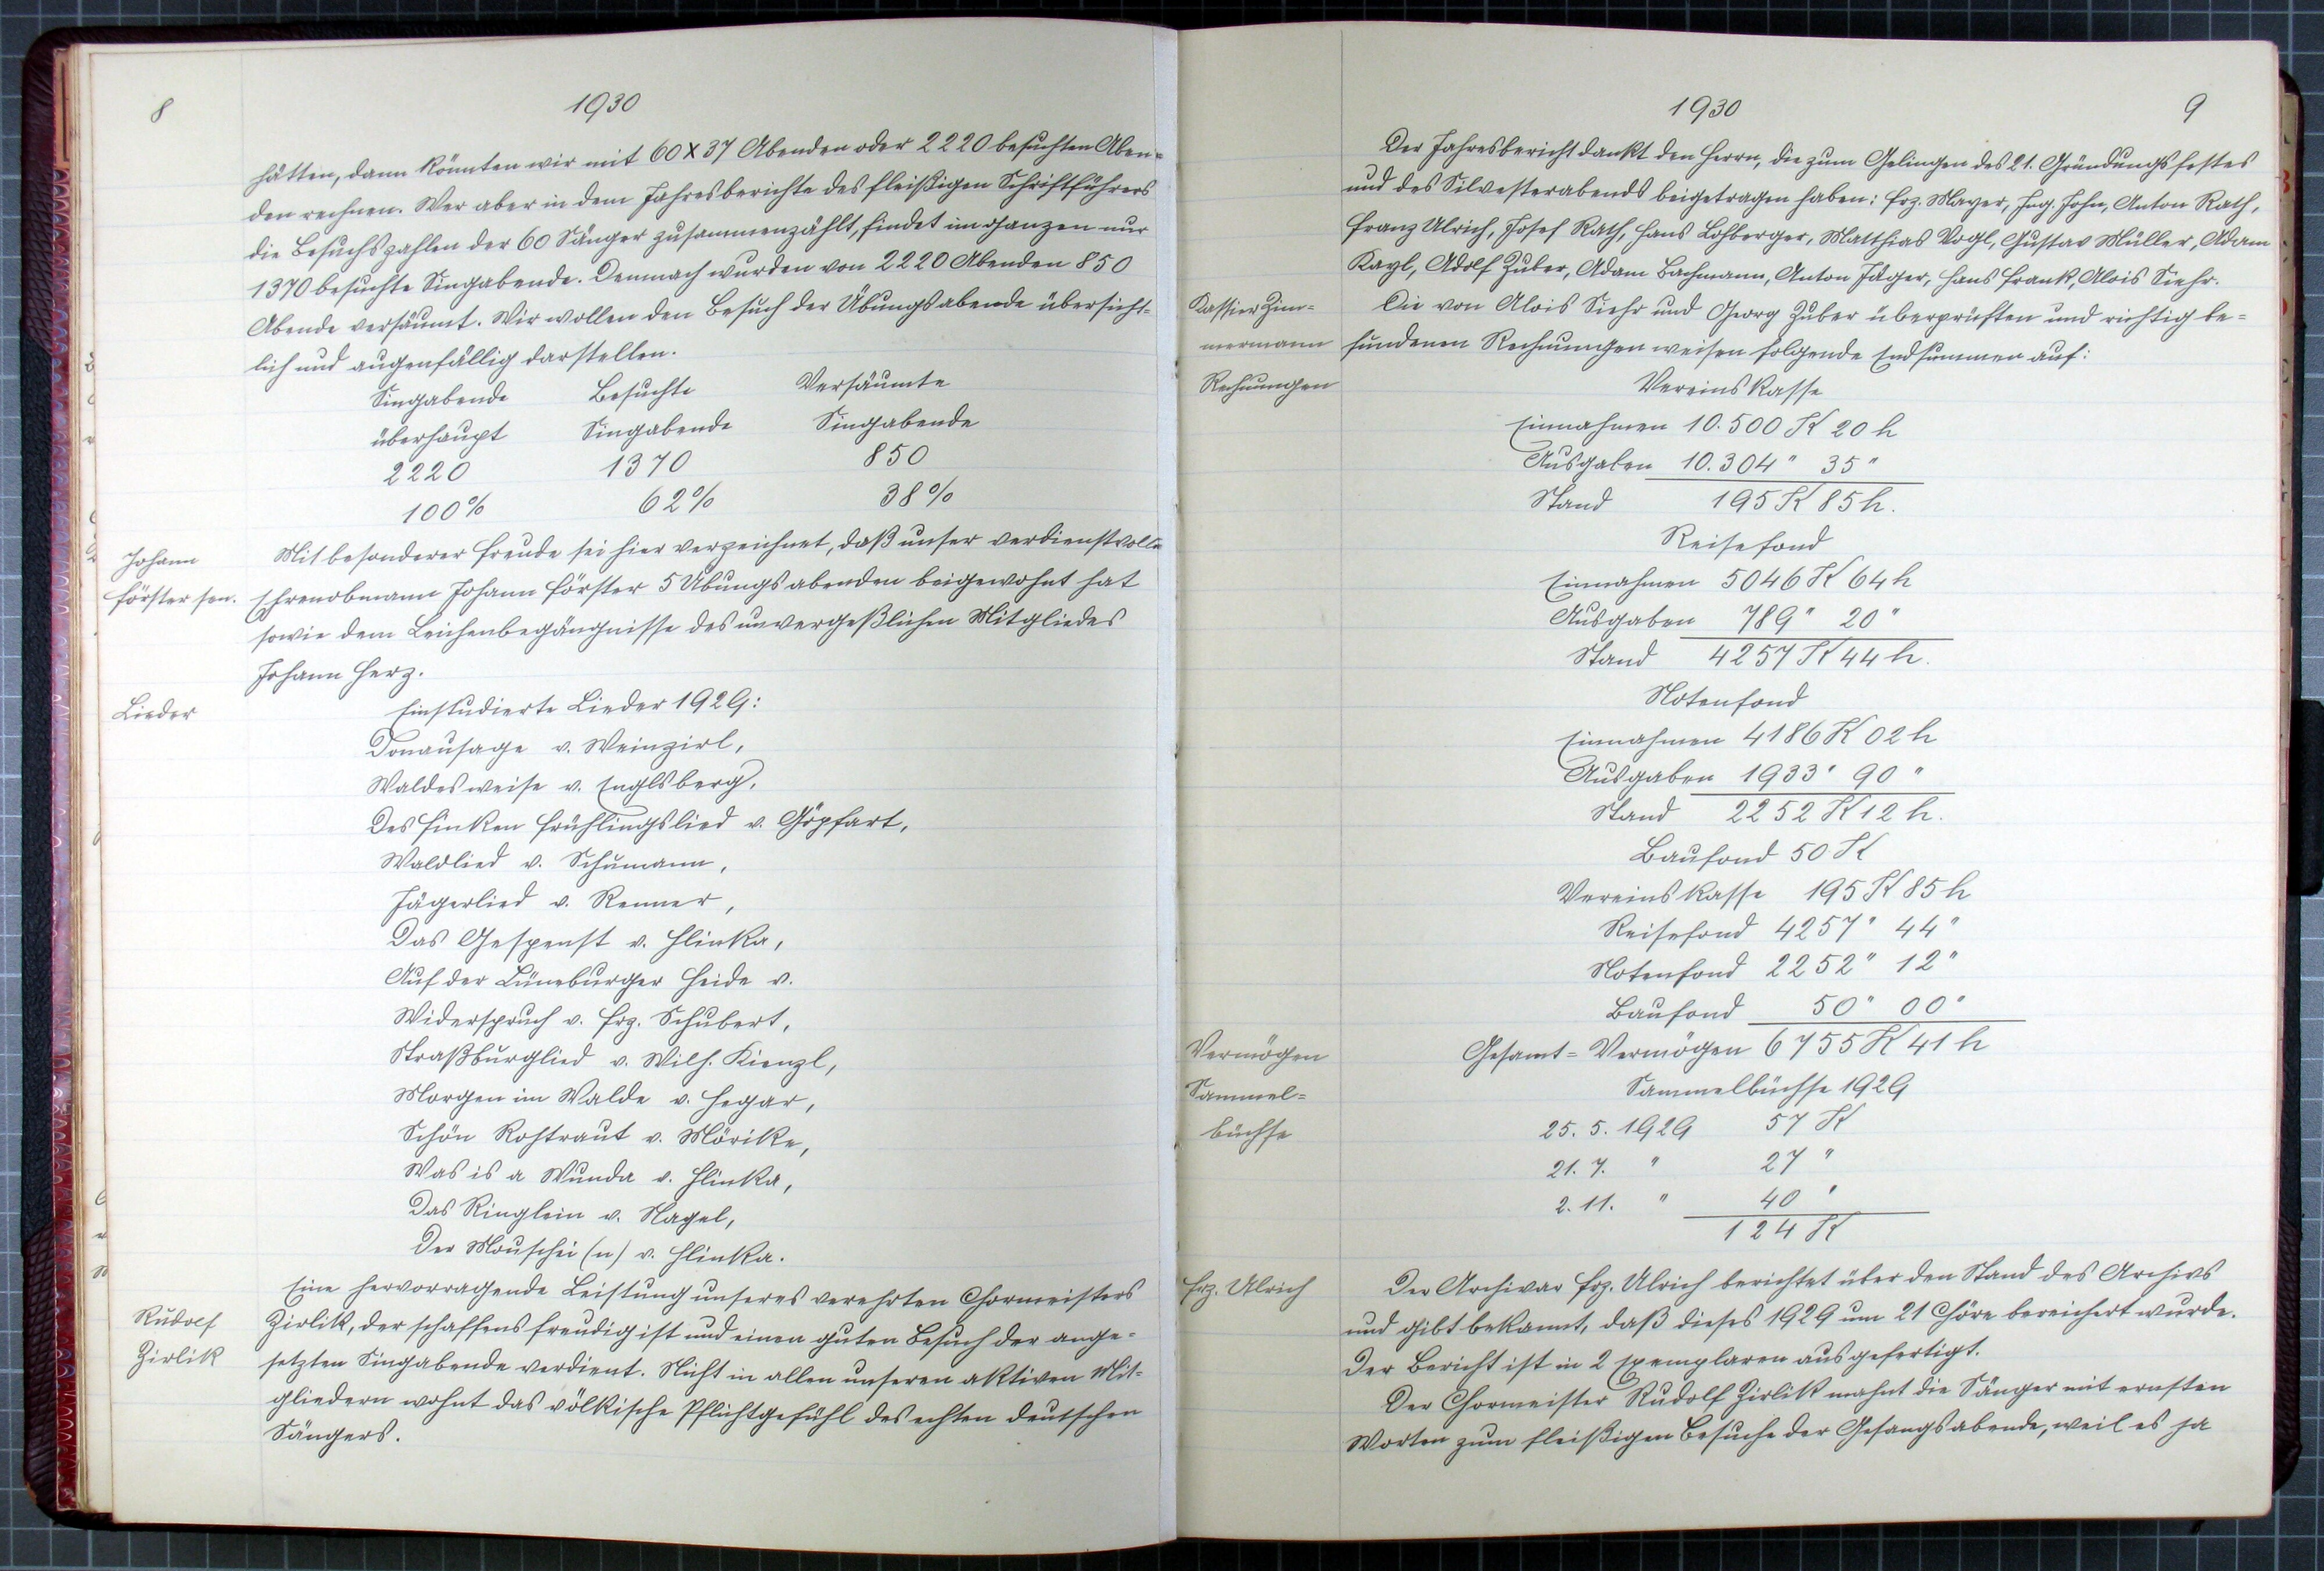 8
1930
hätten, dann könnten wir mit 60 x 37 Abenden oder 2220 besuchten Aben=
den rechnen. Wer aber in dem Jahresberichte des fleißigen Schriftführers
die Besuchszahlen der 60 Sänger zusammenzählt, findet im ganzen nur
1370 besuchte Singabende. Demnach wurden von 2220 Abenden 850
Abende versäumt. Wir wollen den Besuch der Übungsabende übersicht=
lich und augenfällig darstellen.
Singabende Besuchte Versäumte
überhaupt Singabende Singabende
2220 1370 850
100% 62% 38%
Johann
Förster sen.
Mit besonderer Freude sei hier verzeichnet, daß unser verdienstvolle
Ehrenobmann Johann Förster 5 Übungsabenden beigewohnt hat
sowie dem Leichenbegängnisse des unvergeßlichen Mitgliedes
Johann Herz.
Lieder
Einstudierte Lieder 1929:
Donausage v. Weinzirl,
Waldesweise v. Englsberg,
Des Finken Frühlingslied v. Göpfart,
Waldlied v. Schumann,
Jägerlied v. Renner,
Das Gespenst v. Hlinka,
Auf der Lüneburger Heide v.
Widerspruch v. Frz. Schubert,
Straßburglied v. Wilh. Kienzl,
Morgen im Walde v. Hegar,
Schön Rohtraut v. Mörike,
Was is a Wunda v. Hlinka,
Das Ringlein v. Nagel,
Der Mouschei (n) v. Hlinka.
Rudolf
Zirlik
Eine hervorragende Leistung unseres verehrten Chormeisters
Zirlik, der schaffensfreudig ist und einen guten Besuch der ange=
setzten Singabende verdient. Nicht in allen unseren aktiven Mit=
gliedern wohnt das völkische Pflichtgefühl des echten deutschen
Sängers.
1930
9
Der Jahresbericht dankt den Herrn, die zum Gelingen des 21. Gründungsfestes
und des Silvesterabends beigetragen haben: Frz. Mayer, Ing. John, Anton Rath,
Franz Ulrich, Josef Rath, Hans Loßberger, Matthias Vogl, Gustav Müller, Adam
Kagl, Adolf Huber, Adam Bachmann, Anton Jäger, Hans Frank, Alois Siehr.
Kassier Zim=
mermann
Rechnungen
Die von Alois Siehr und Georg Huber überprüften und richtig be=
fundenen Rechnungen weisen folgende Endsummen auf:
Vereinskasse
Einnahmen 10.500 K 20 h
Ausgaben 10.304 " 35 "
Stand 195 K 85 h.
Reisefond
Einnahmen 5046 K 64 h
Ausgaben 789 " 20 "
Stand 4257 K 44 h.
Notenfond
Einnahmen 4186 K 02 h
Ausgaben 1933 " 90 "
Stand 2252 K 12 h.
Baufond 50 K
Vereinskasse 195 K 85 h
Reisefond 4257 " 44 "
Notenfond 2252 " 12 "
Baufond 50 " 00 "
Vermögen
Gesamt=Vermögen 6755 K 41 h
Sammel=
büchse
Sammelbüchse 1929
25. 5. 1929 57 K
21. 7. " 27 "
2. 11. " 40 "
124 K
Frz. Ulrich
Der Archivar Frz. Ulrich berichtet über den Stand des Archivs
und gibt bekannt, daß dieses 1929 um 21 Chöre bereichert wurde.
Der Bericht ist in 2 Exemplaren ausgefertigt.
Der Chormeister Rudolf Zirlik mahnt die Sänger mit ernsten
Worten zum fleißigen Besuche der Gesangsabende, weil es ja